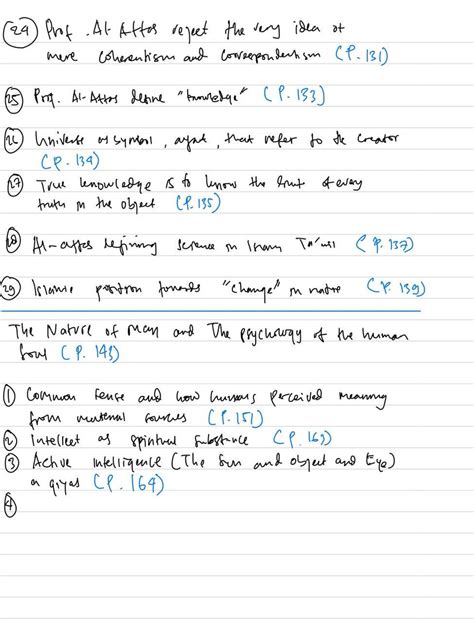 24 Prof. Al-Attas reject the very idea of
mere coherentism and correspondentism (P. 131)
25 Prof. Al-Attas define "knowledge" (P. 133)
26 Universe as symbol, ayat, that refer to the Creator
(P. 134)
27 True knowledge is to know the limit of every
truth in the object (P. 135)
28 Al-attas defining science in Ta'wil (P. 137)
29 Islamic position towards "change" in nature (P. 139)
The Nature of Man and The psychology of the human
Soul (P. 143)
1 Common sense and how humans perceived meaning
from sources (P. 151)
2 Intellect as spiritual substance (P. 163)
3 Active intelligence (The Sun and object and Eye)
a qiyas (P. 164)
4